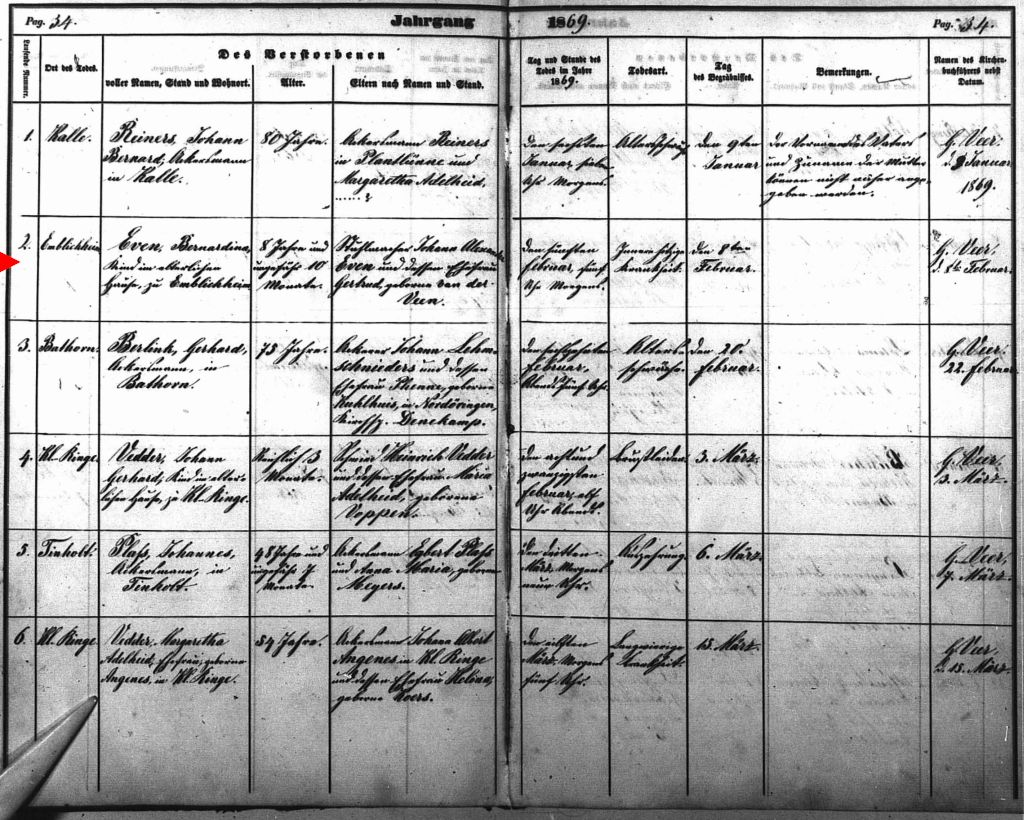 Pag. 34.
Jahrgang
1869.
Pag. 34.
Laufende Nummer.
Ort des Todes.
Des Verstorbenen
voller Namen, Stand und Wohnort.
Alter.
Eltern nach Namen und Stand.
Tag und Stunde des
Todes im Jahre
1869.
Todesart.
Tag
des Begräbnisses.
Bemerkungen.
Namen des Kirchen-
buchführers nebst
Datum.
1.
Kalle.
Reiners, Johann
Bernard, Ackersmann
in Kalle.
80 Jahre.
Ackersmann Reiners
in Plantlünne und
Margaretha Adelheid
...... ?
den sechsten
Januar, sieben
Uhr Morgens.
Altersschwäche
den 9ten
Januar
der Vorname des Vaters
und Zuname der Mutter
können nicht näher ange-
geben werden.
G. Veer.
Januar
1869.
2.
Emblichheim
Even, Bernardina,
Kind im elterlichen
Hause, zu Emblichheim
8 Jahre und
ungefähr 10
Monate.
Stuhlmacher Johann
Even und dessen Ehefrau
Gertrud, geborne van der
Veen.
den fünften
Februar, fünf
Uhr Morgens.
Innere hitzige
Krankheit.
den 8ten
Februar.
G. Veer.
d. 8ten Februar.
3.
Bathorn.
Berlink, Gerhard,
Ackersmann, in
Bathorn.
75 Jahre.
Ackerer Johann Lehm-
schnieders und dessen
Ehefrau Phenne, geborne
Kuhlhuis, in Nordöringen,
Kirchsp. Denekamp.
den sechszehnten
Februar,
Abends fünf Uhr.
Alters-
schwäche.
den 20.
Februar.
G. Veer.
22. Februar
4.
Kl. Ringe.
Vedder, Johann
Gerhard, Kind im elter-
lichen Hause, zu Kl. Ringe.
Reichlich 3
Monate.
Schmied Heinrich Vedder
und dessen Ehefrau Maria
Adelheid, geborene
Voppen.
den achtund
zwanzigsten
Februar, elf
Uhr Abends.
Brustleiden.
3. März.
G. Veer.
3. März.
5.
Tinholt.
Plass, Johannes,
Ackersmann, in
Tinholt.
48 Jahre und
ungefähr 7
Monate
Ackersmann Egbert Plass
und Anna Maria, geborne
Meyers.
den dritten
März, Morgens
neun Uhr.
Auszehrung.
6. März.
G. Veer.
7. März.
6.
Kl. Ringe
Vedder, Margaretha
Adelheid, Ehefrau, geborne
Angenes, in Kl. Ringe.
54 Jahre.
Ackersmann Johann Albert
Angenes, in Kl. Ringe
und dessen Ehefrau Helina,
geborne
den elften
März, Morgens
fünf Uhr.
Langwierige
Krankheit.
15. März.
G. Veer.
d. 15. März.